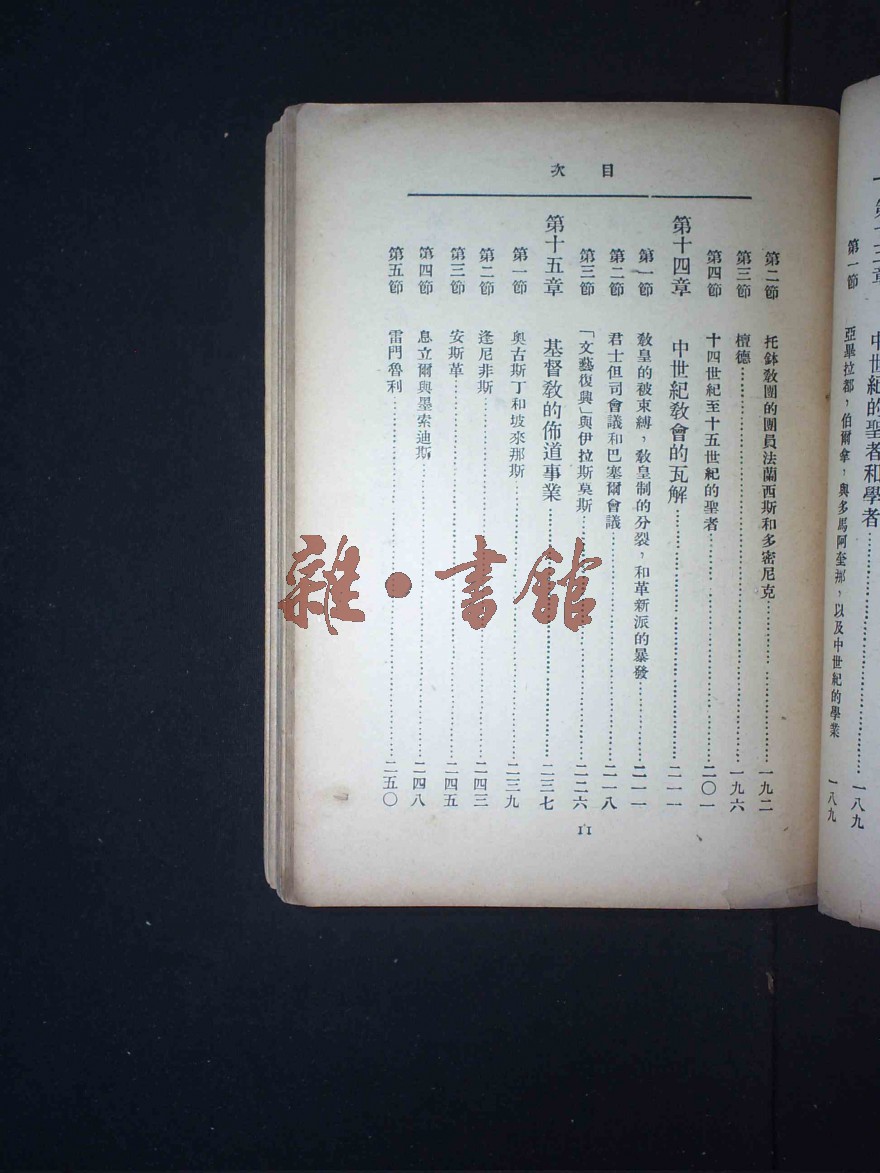 第十三章　中世紀的聖者和學者………一八九
第一節　亞畢拉都，伯爾拿，與多馬阿奎那，以及中世紀的學業　一八九
目次
第二節　托鉢教團的團員法蘭西斯和多密尼克………一九二
第三節　檀德………一九六
第四節　十四世紀至十五世紀的聖者………二〇一
第十四章　中世紀教會的瓦解………二一一
第一節　教皇的被束縛，教皇制的分裂，和革新派的暴發………二一一
第二節　君士但司會議和巴塞爾會議………二一八
第三節　「文藝復興」與伊拉斯莫斯………二二六
第十五章　基督教的佈道事業………二三七
第一節　奧古斯丁和坡來那斯………二三九
第二節　逢尼非斯………二四三
第三節　安斯革………二四五
第四節　息立爾與墨索迪斯………二四八
第五節　雷門魯利………二五〇
11
雜·書館